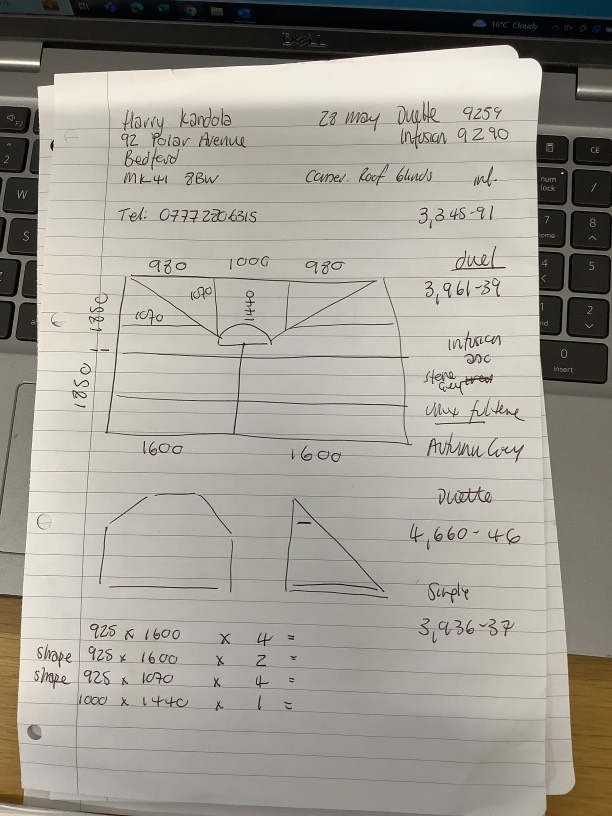 16°C Cloudy
DELL
Harry Kandola
28 May
Duette 9259
92 Polar Avenue
Infusion 9290
Bedford
MK41 8BW
Conser. Roof blinds
inf.
Tel: 07772206315
3,345-91
980 1000 980
duel
3,961-39
1070
1440
1070
1850 1850
Infusion
asc
Stone
Grey
Autumn Grey
1600
1600
Duette
4,660-46
Simple
3,936-37
925 x 1600 x 4 =
shape 925 x 1600 x 2 =
shape 925 x 1070 x 4 =
1000 x 1440 x 1 =
F2
2
W
S
CE
num
lock
/
7
home
8
4
5
1
end
2
0
insert